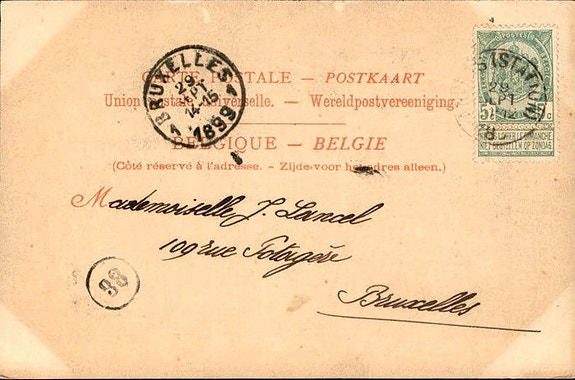 CARTE POSTALE – POSTKAART
Union postale universelle. – Wereldpostvereeniging.
BELGIQUE – BELGIE
(Côté réservé à l'adresse. – Zijde voor het adres alleen.)
BRUXELLES
29
SEPT
14-15
1 1899 1
POSTES
(STATION)
29
SEPT
12
5 C
NE PAS LIVRER LE DIMANCHE
NIET BESTELLEN OP ZONDAG
Mademoiselle J. Lancel
109 rue Potagère
Bruxelles
38